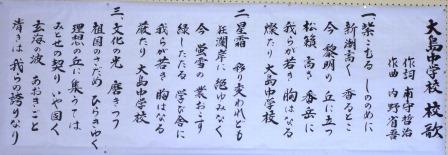 大島中学校 校歌
作詞 甫守哲治
作曲 内野省吾
一、栄こもる しののめに
新潮高く 香るところ
今 黎明の 丘に立つ
松籟高き 香岳に
我らが若き 胸はなる
燦たり 大島中学校
二、星霜 移り変われども
狂瀾岸に 絶ゆみなく
今 蛍雪の 業おこす
緑したたる 学び舎に
我らが若き 胸はなる
厳たり 大島中学校
三、文化の光 磨きつつ
祖国のさだめ ひらきゆく
理想の丘に 集うては
みとせの契り いや固く
玄海の波 あおきごと
清きは 我らの誇りなり